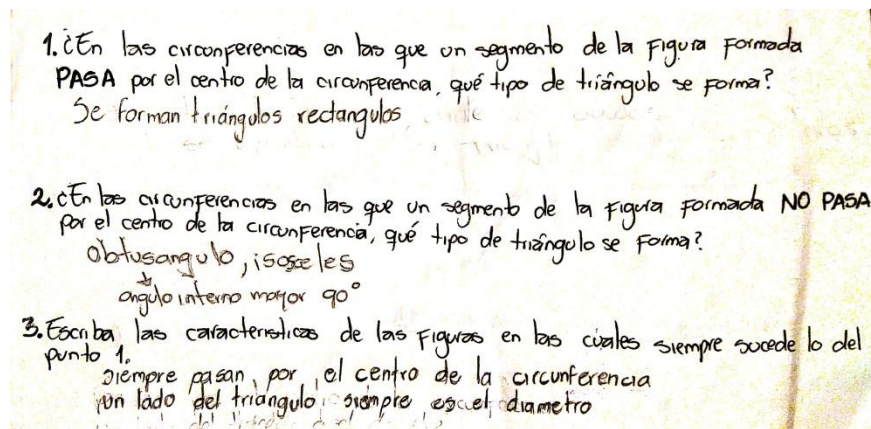 1. ¿En las circunferencias en las que un segmento de la Figura Formada
PASA por el centro de la circunferencia, qué tipo de triángulo se forma?
Se forman triángulos rectangulos
2. ¿En las circunferencias en las que un segmento de la Figura Formada NO PASA
por el centro de la circunferencia, qué tipo de triángulo se Forma?
Obtusangulo, isosceles
↓
angulo interno mayor 90°
3. Escriba las características de las Figuras en las cuales siempre sucede lo del
punto 1.
siempre pasan por el centro de la circunferencia
un lado del triangulo siempre es el diametro